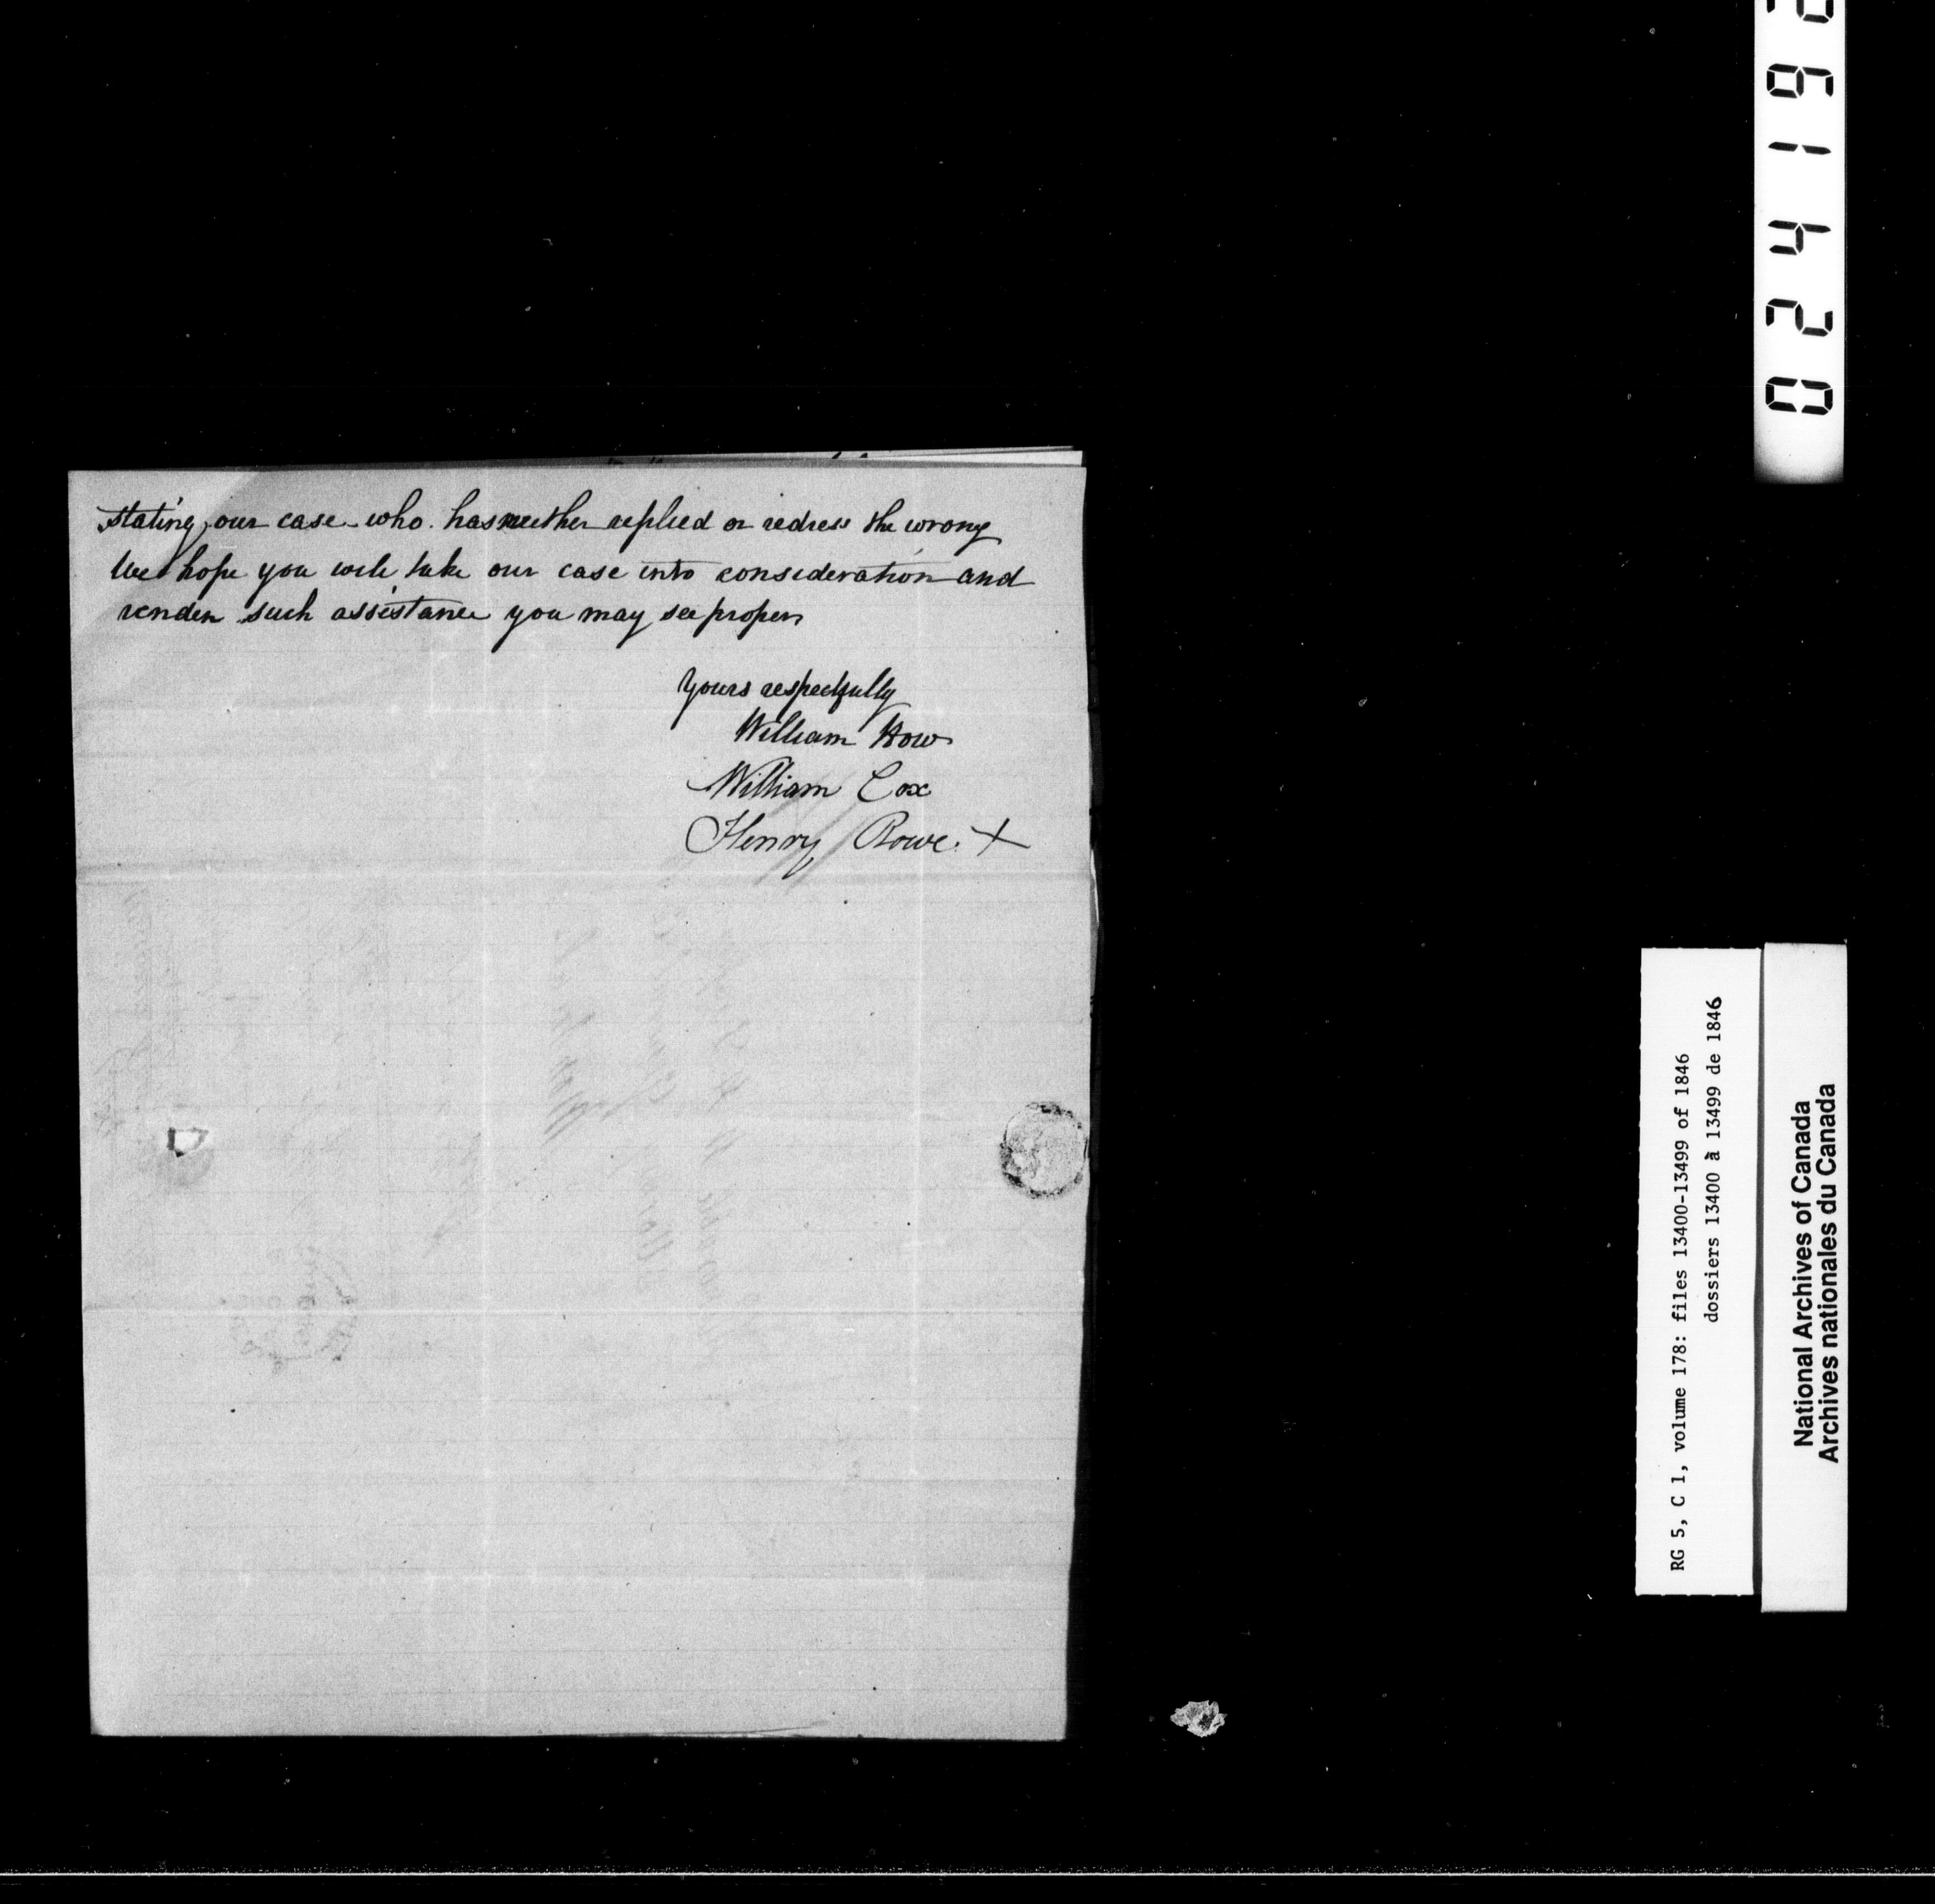 stating our case who. has neither replied or redress the wrong
We hope you will take our case into consideration and
render such assistance you may see proper
Yours respectfully
William How
William Cox
Henry Rowe. X
02419
RG 5, C 1, volume 178: files 13400-13499 of 1846
dossiers 13400 à 13499 de 1846
National Archives of Canada
Archives nationales du Canada